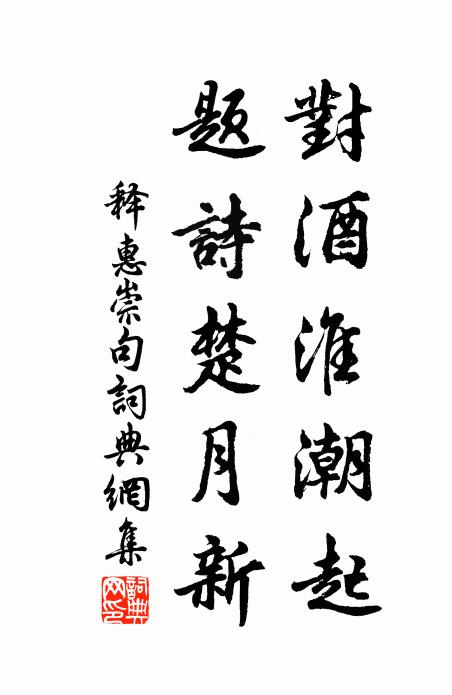 對酒淮潮起
題詩楚月新
释惠崇句詞典網集